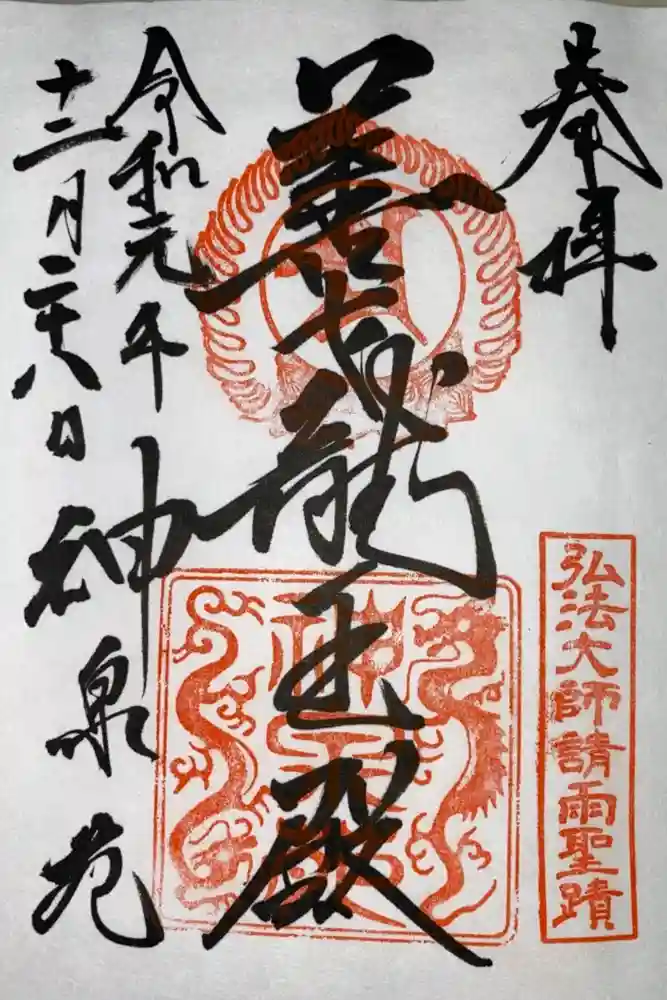 奉拝
弘法大師請雨聖蹟
善女龍王殿
令和元年
十二月二十八日
神泉苑
神泉苑